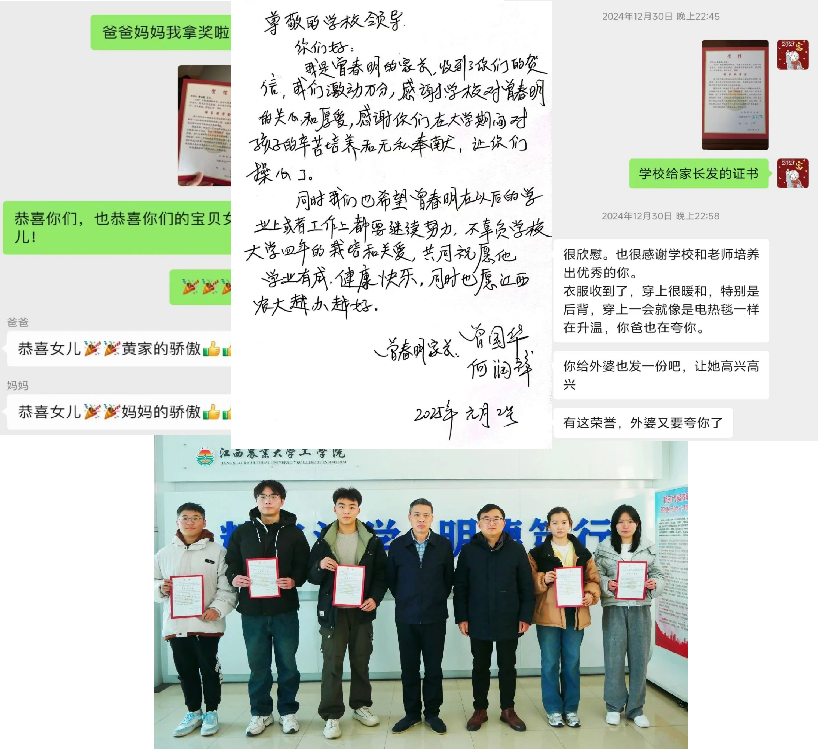 爸爸妈妈我拿奖啦
恭喜你们，也恭喜你们的宝贝女
儿！
爸爸
恭喜女儿🎉🎉黄家的骄傲👍
妈妈
恭喜女儿🎉🎉妈妈的骄傲👍
尊敬的学校领导
你们好：
我是曾春明的家长，收到了你们的贺
信，我们激动万分，感谢学校对曾春明
的关心和厚爱，感谢你们在大学期间对
孩子的辛苦培养和无私奉献，让你们
操心了。
同时我们也希望曾春明在以后的学
业上或者工作上都要继续努力，不辜负学校
大学四年的栽培和关爱，共同祝愿他
学业有成，健康快乐，同时也愿江西
农大越办越好。
曾春明家长：曾国华
何润
2025年元月2号
2024年12月30日 晚上22:45
学校给家长发的证书
2024年12月30日 晚上22:58
很欣慰。也很感谢学校和老师培养
出优秀的你。
衣服收到了，穿上很暖和，特别是
后背，穿上一会就像是电热毯一样
在升温，你爸也在夸你。
你给外婆也发一份吧，让她高兴高
兴
有这荣誉，外婆又要夸你了
江西农业大学工学院
学 明德笃行